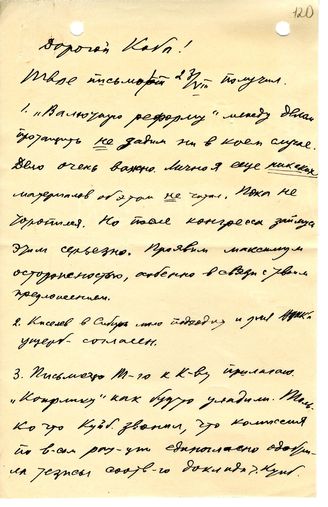 120
Дорогой Коба!
Твое письмо от 2/VII получил.
1. „Валютную реформу" между делом
протащить не дадим ни в коем случае.
Дело очень важно. Лично я еще никаких
материалов об этом не читал. Пока не
торопился. Но после конгресса займусь
этим серьезно. Проявим максимум
осторожности, особенно в связи с твоим
предложением.
2. Киселев в Сибирь мало подходит и для
ущерб - согласен.
3. Письмецо Т-го к К-ву прилагаю.
„Конфликт" как будто уладили. Толь-
ко что Куйб. звонил, что комиссия
по единогласно одобри-
ла тезисы соотв-го доклада т. Куйб.